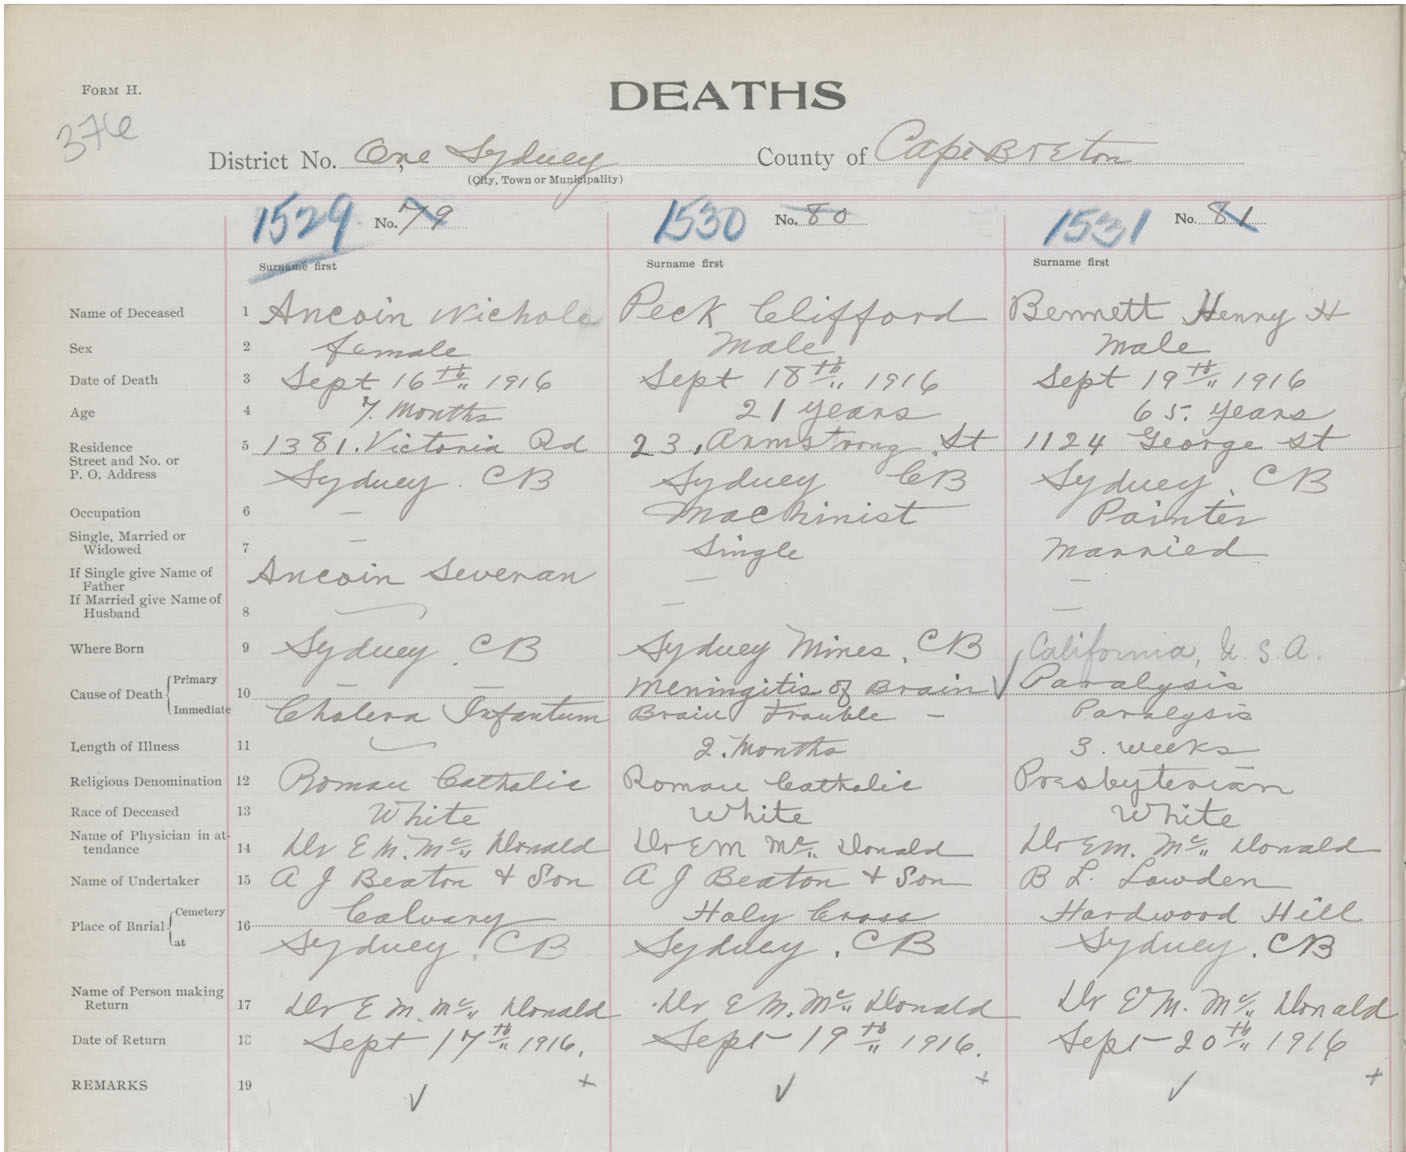 FORM H.
DEATHS
376
District No. One, Sydney County of Cape Breton
(City, Town or Municipality)
1529 No. 79 1530 No. 80 1531 No. 81
Surname first Surname first Surname first
Name of Deceased 1 Aucoin Nichola Peck Clifford Bennett Henry H
Sex 2 female Male Male
Date of Death 3 Sept 16th 1916 Sept 18th 1916 Sept 19th 1916
Age 4 7. Months 21 years 65. years
Residence 5 1381. Victoria Rd 23, Armstrong St 1124 George St
Street and No. or
P. O. Address Sydney. CB Sydney CB Sydney. CB
Occupation 6 — Machinist Painter
Single, Married or
Widowed 7 — Single Married
If Single give Name of
Father Aucoin Severan — —
If Married give Name of
Husband 8 — — —
Where Born 9 Sydney. CB Sydney Mines, CB California, U.S.A.
Cause of Death { Primary 10 — — Meningitis of Brain √ Paralysis
Immediate Cholera Infantum Brain Trouble – Paralysis
Length of Illness 11 2. Months 3. weeks
Religious Denomination 12 Roman Catholic Roman Catholic Presbyterian
Race of Deceased 13 White White White
Name of Physician in at-
tendance 14 Dr E M. Mc Donald Dr E M Mc Donald Dr E M. Mc Donald
Name of Undertaker 15 A J Beaton + Son A J Beaton + Son B L. Lowden
Place of Bnrial { Cemetery 16 Calvary Holy Cross Hardwood Hill
at Sydney. CB Sydney. CB Sydney. CB
Name of Person making
Return 17 Dr E M. Mc Donald Dr E M. Mc Donald Dr E M. Mc Donald
Date of Return 18 Sept 17th 1916. Sept 19th 1916. Sept 20th 1916
REMARKS 19 √ + √ + √ +